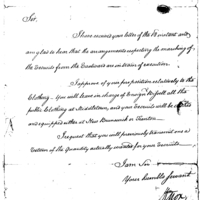 Sir.
I have received your letter of the 18 instant and
am glad to hear that the arrangements respecting the marching of
the Recruits from the Eastward are in train of execution.
I approve of your proposition relatively to the
Clothing. You will leave in charge of Ensign all the
public Clothing at Middletown, and your Recruits will be
and equipped either at New Brunswick or Trenton.
I request that you will previously transmit me a
Return of the Quantity actually for your Recruits.
I am Sir
Your humble servant